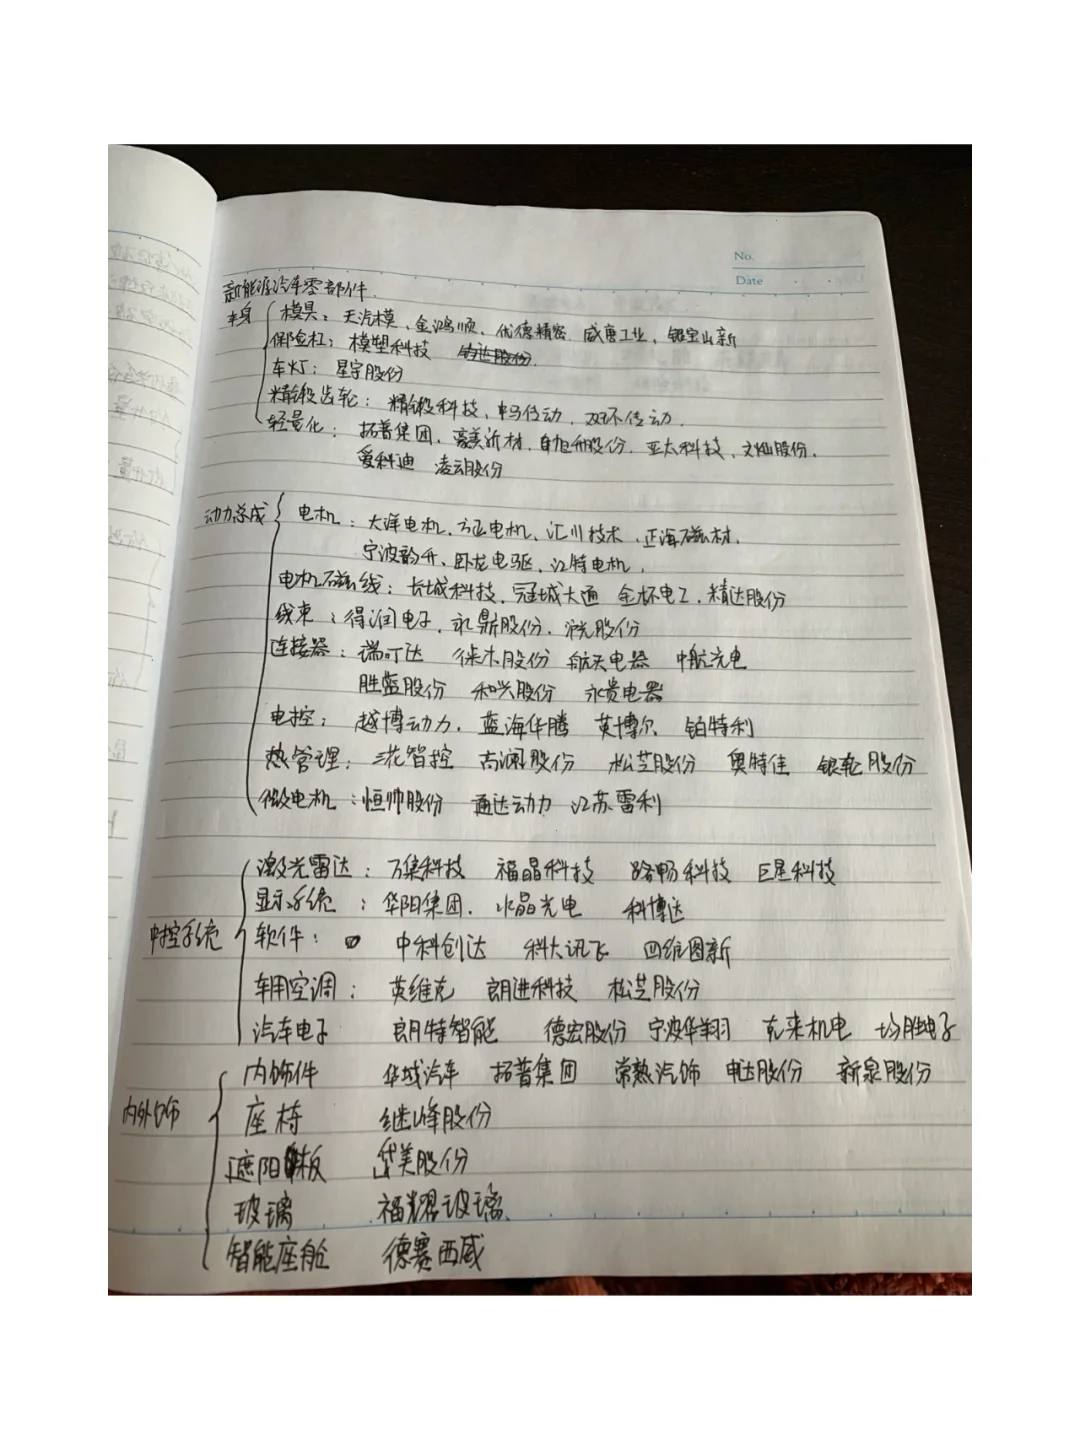 No.
Date
新能源汽车零部件.
车身
模具：天汽模、金鸿顺、优德精密 威唐工业、银宝山新
保险杠：模塑科技
车灯：星宇股份
精锻齿轮：精锻科技、中马传动、双环传动.
轻量化：拓普集团、豪美新材、旭升股份、亚太科技、文灿股份、
爱科迪 凌云股份
动力总成
电机：大洋电机、方正电机、汇川技术、正海磁材、
宁波韵升、卧龙电驱、江特电机、
电机磁线：长城科技、冠城大通 金杯电工、精达股份
线束：得润电子、永鼎股份、沃尔股份
连接器：瑞可达 徕木股份 航天电器 中航光电
胜蓝股份 和兴股份 永贵电器
电控：越博动力、蓝海华腾 英博尔 铂特利
热管理：三花智控 高澜股份 松芝股份 奥特佳 银轮股份
微电机：恒帅股份 通达动力 江苏雷利
中控系统
激光雷达：万集科技 福晶科技 路畅科技 巨星科技
显示系统：华阳集团、水晶光电 科博达
软件： 中科创达 科大讯飞 四维图新
车用空调：英维克 朗进科技 松芝股份
汽车电子 朗特智能 德宏股份 宁波华翔 克来机电 均胜电子
内外饰
内饰件 华域汽车 拓普集团 常熟汽饰 申达股份 新泉股份
座椅 继峰股份
遮阳板 岱美股份
玻璃 福耀玻璃、
智能座舱 德赛西威